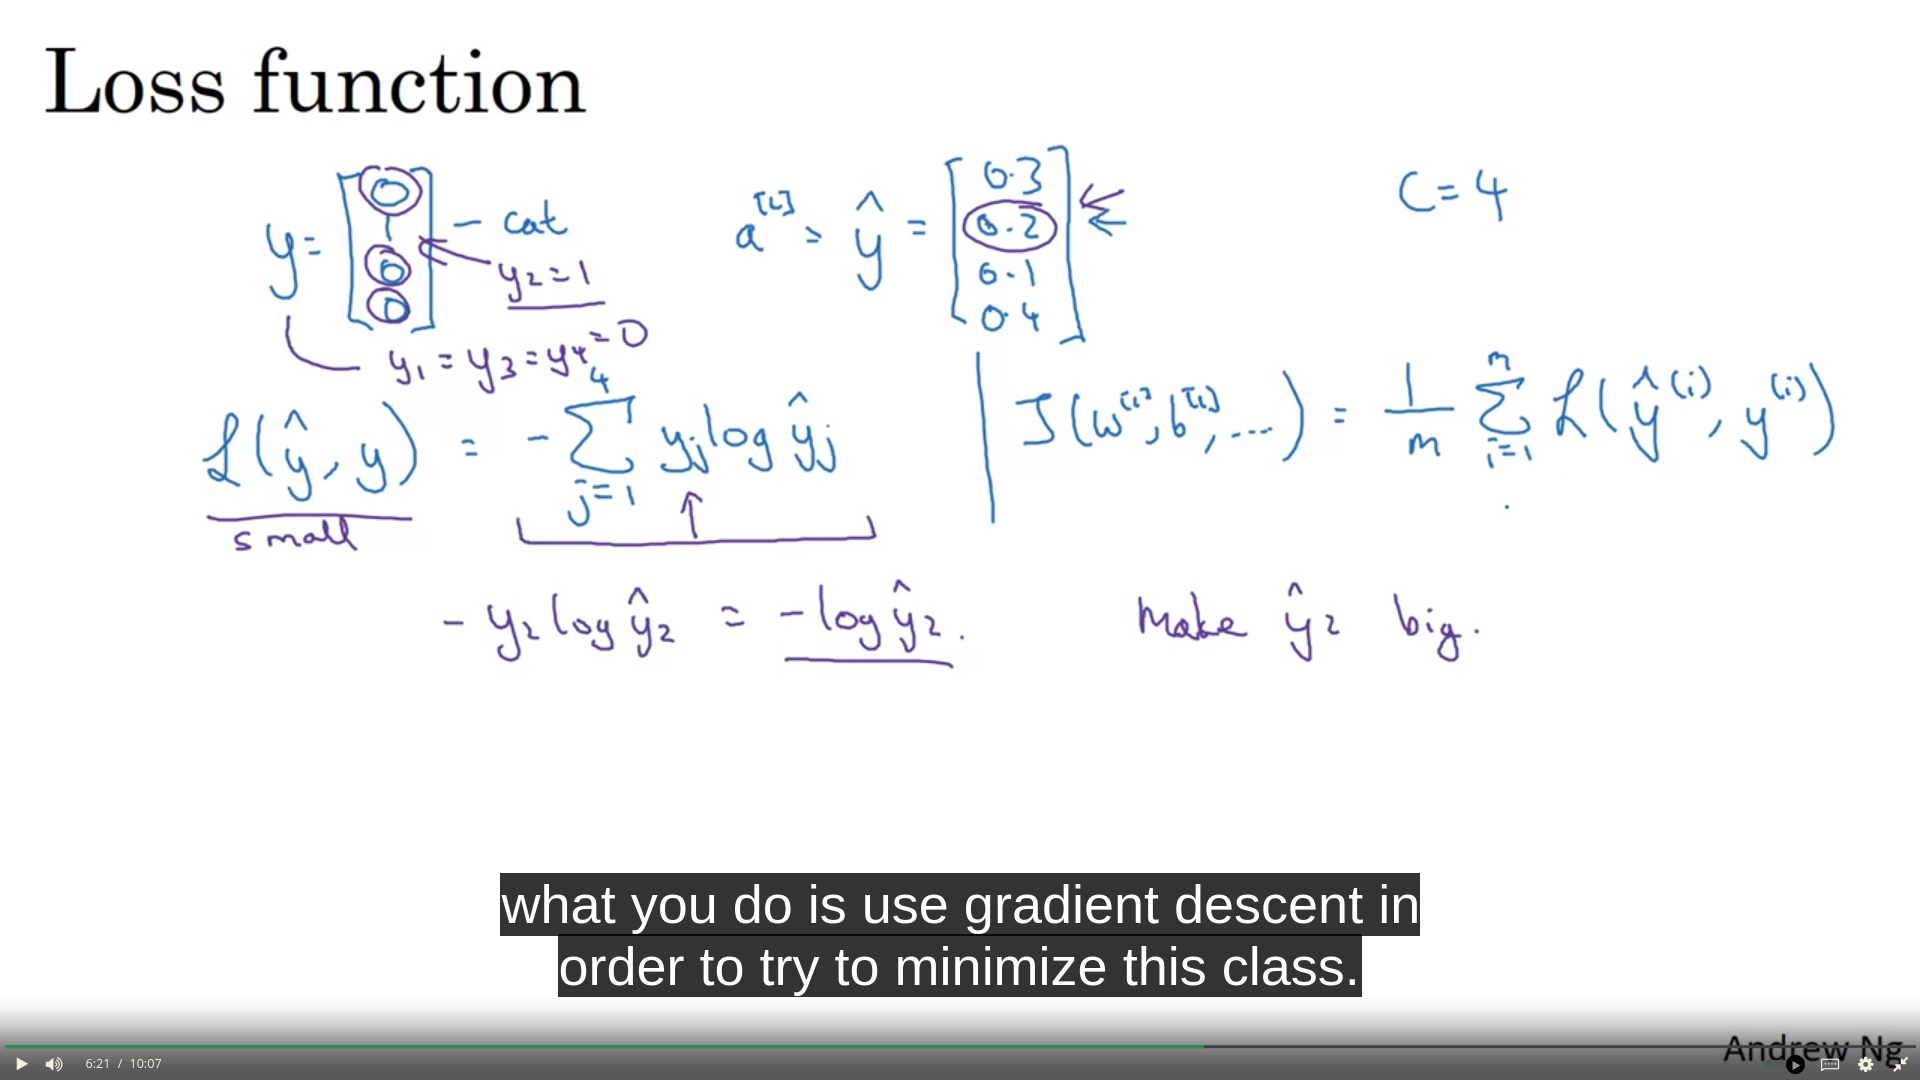 Loss function
y = [0 1 0 0] - cat
y₂ = 1
y₁ = y₃ = y₄ = 0
a^[L] = ŷ = [0.3 0.2 0.1 0.4]
C = 4
ℒ(ŷ, y) = - ∑_{j=1}^{4} yⱼ log ŷⱼ
small
J(w^[1], b^[1], ...) = 1/m ∑_{i=1}^{m} ℒ(ŷ^(i), y^(i))
- y₂ log ŷ₂ = - log ŷ₂.
Make ŷ₂ big.
what you do is use gradient descent in
order to try to minimize this class.
Andrew Ng
6:21 / 10:07